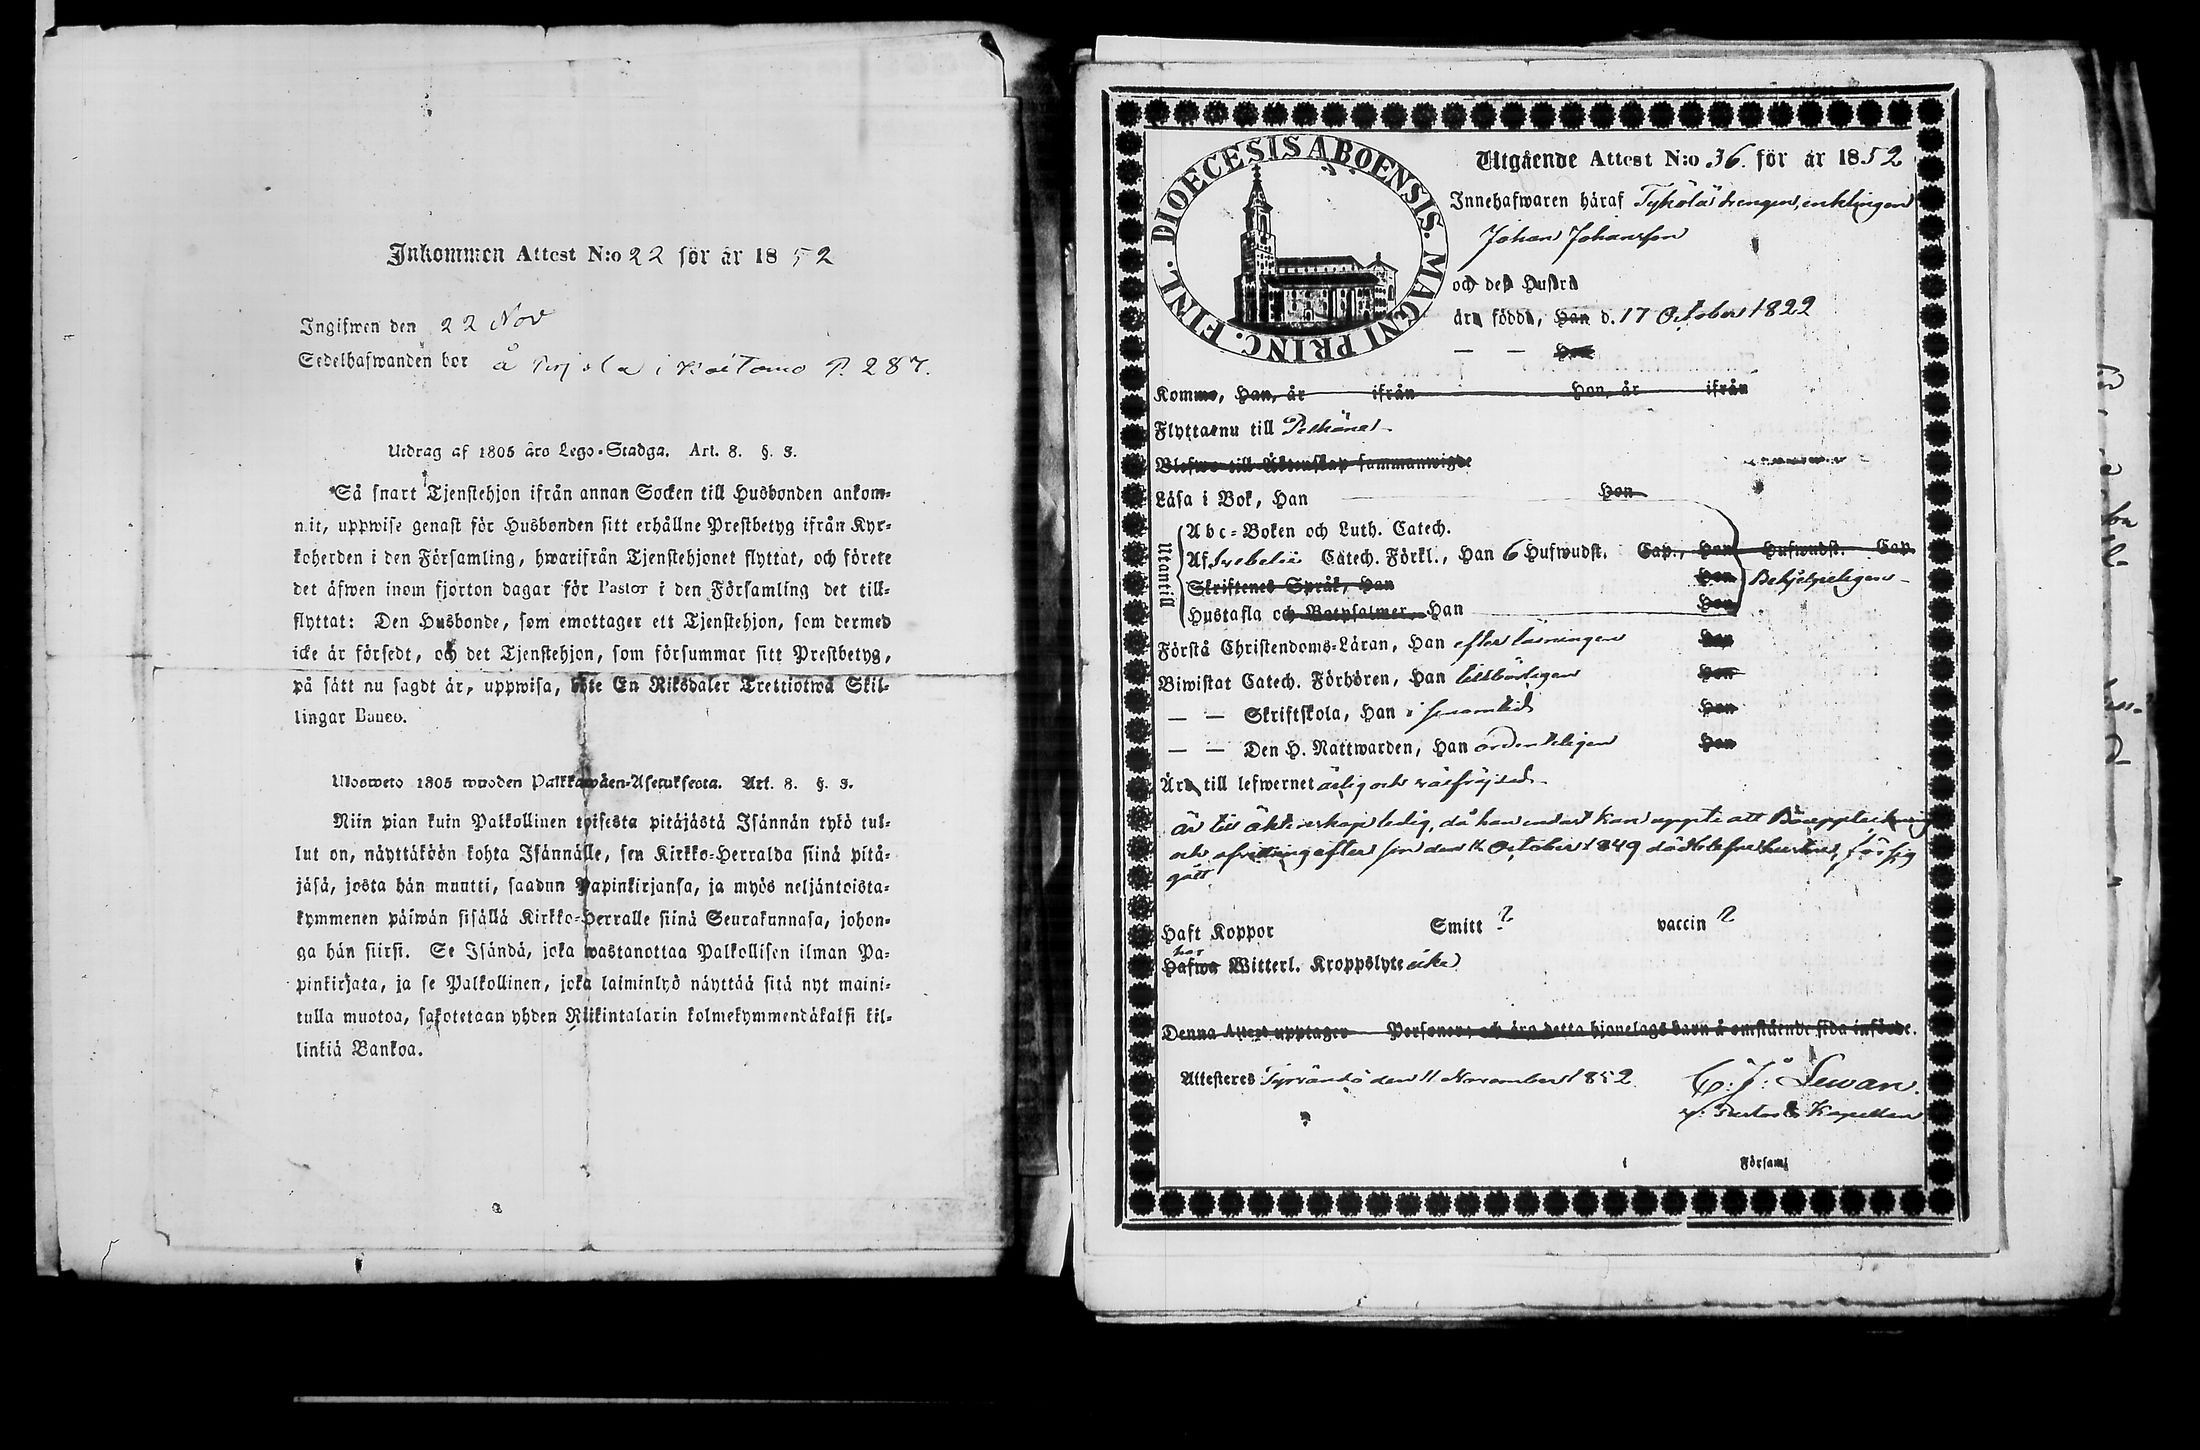 Inkommen Attest N:o 22 för år 1852
Ingifwen den 22 Nov
Sedelhafwanden bor å i P. 287.
Utdrag af 1805 års Lego-Stadga. Art. 8. §. 3.
Så snart Tjenstehjon ifrån annan Socken till Husbonden ankom-
mit, uppwise genast för Husbonden sitt erhållne Prestbetyg ifrån Kyr-
koherden i den Församling, hwarifrån Tjenstehjonet flyttat, och förete
det äfwen inom fjorton dagar för Pastor i den Församling det till-
flyttat: Den Husbonde, som emottager ett Tjenstehjon, som dermed
icke är försedt, och det Tjenstehjon, som försummar sitt Prestbetyg,
på sätt nu sagdt är, uppwisa, böte En Riksdaler Trettiotwå Skil-
lingar Banco.
Ulosweto 1805 wuoden Palkkawäen-Asetuksesta. Art. 8. §. 3.
Niin pian kuin Palkollinen toisesta pitäjästä Isännän tykö tul-
lut on, näyttäköön kohta Isännälle, sen Kirkko-Herralda siinä pitä-
jäsä, josta hän muutti, saadun Papinkirjansa, ja myös neljäntoista-
kymmenen päiwän sisällä Kirkko-Herralle siinä Seurakunnasa, johon-
ga hän siirsi. Se Isändä, joka wastanottaa Palkollisen ilman Pa-
pinkirjata, ja se Palkollinen, joka laiminlyö näyttää sitä nyt maini-
tulla muotoa, sakotetaan yhden Riikintalarin kolmekymmendäkaksi kil-
linkiä Bankoa.
DIOECESIS ABOENSIS. MAGNI PRINC. FINL.
Utgående Attest N:o 36. för år 1852
Innehafwaren häraf Tykölä drengen, enklingen
Johan Johansson
och deß Hustru
äro födde, Han d. 17 October 1822
— — Hon
Komne, Han, år ifrån Hon, år ifrån
Flytta nu till Pelkäne
Blefwo till Äktenskap sammanwigde
Läsa i Bok, Han Hon
Utantill
Abc-Boken och Luth. Catech.
Af Svebelii Catech. Förkl., Han 6 Hufwudst. Cap., Hon Hufwudst. Cap.
Skriftenes Språk, Han Hon Behjelpeligen
Hustafla och Botpsalmer, Han Hon
Förstå Christendoms-Läran, Han efter läsningen Hon
Biwistat Catech. Förhören, Han tillbörligen Hon
— — Skriftskola, Han i Hon
— — Den H. Nattwarden, Han ordenteligen Hon
Äro till lefwernet ärlig och wälfrejdad
är till äktenskap ledig, då han endast kan uppte att Bouppteckning
och afwittring efter sin den October 1849 döda hustru, försig
gått
Haft Koppor Smitt ? vaccin ?
har
Hafwa Witterl. Kroppslyte icke
Denna Attest upptager Personer, och äro detta hjonelags barn å omstående sida införde.
Attesteres Tyrvändö den 11 November 1852.
C: J: Lewan.
v. Pastor & Kapellan
i Församl